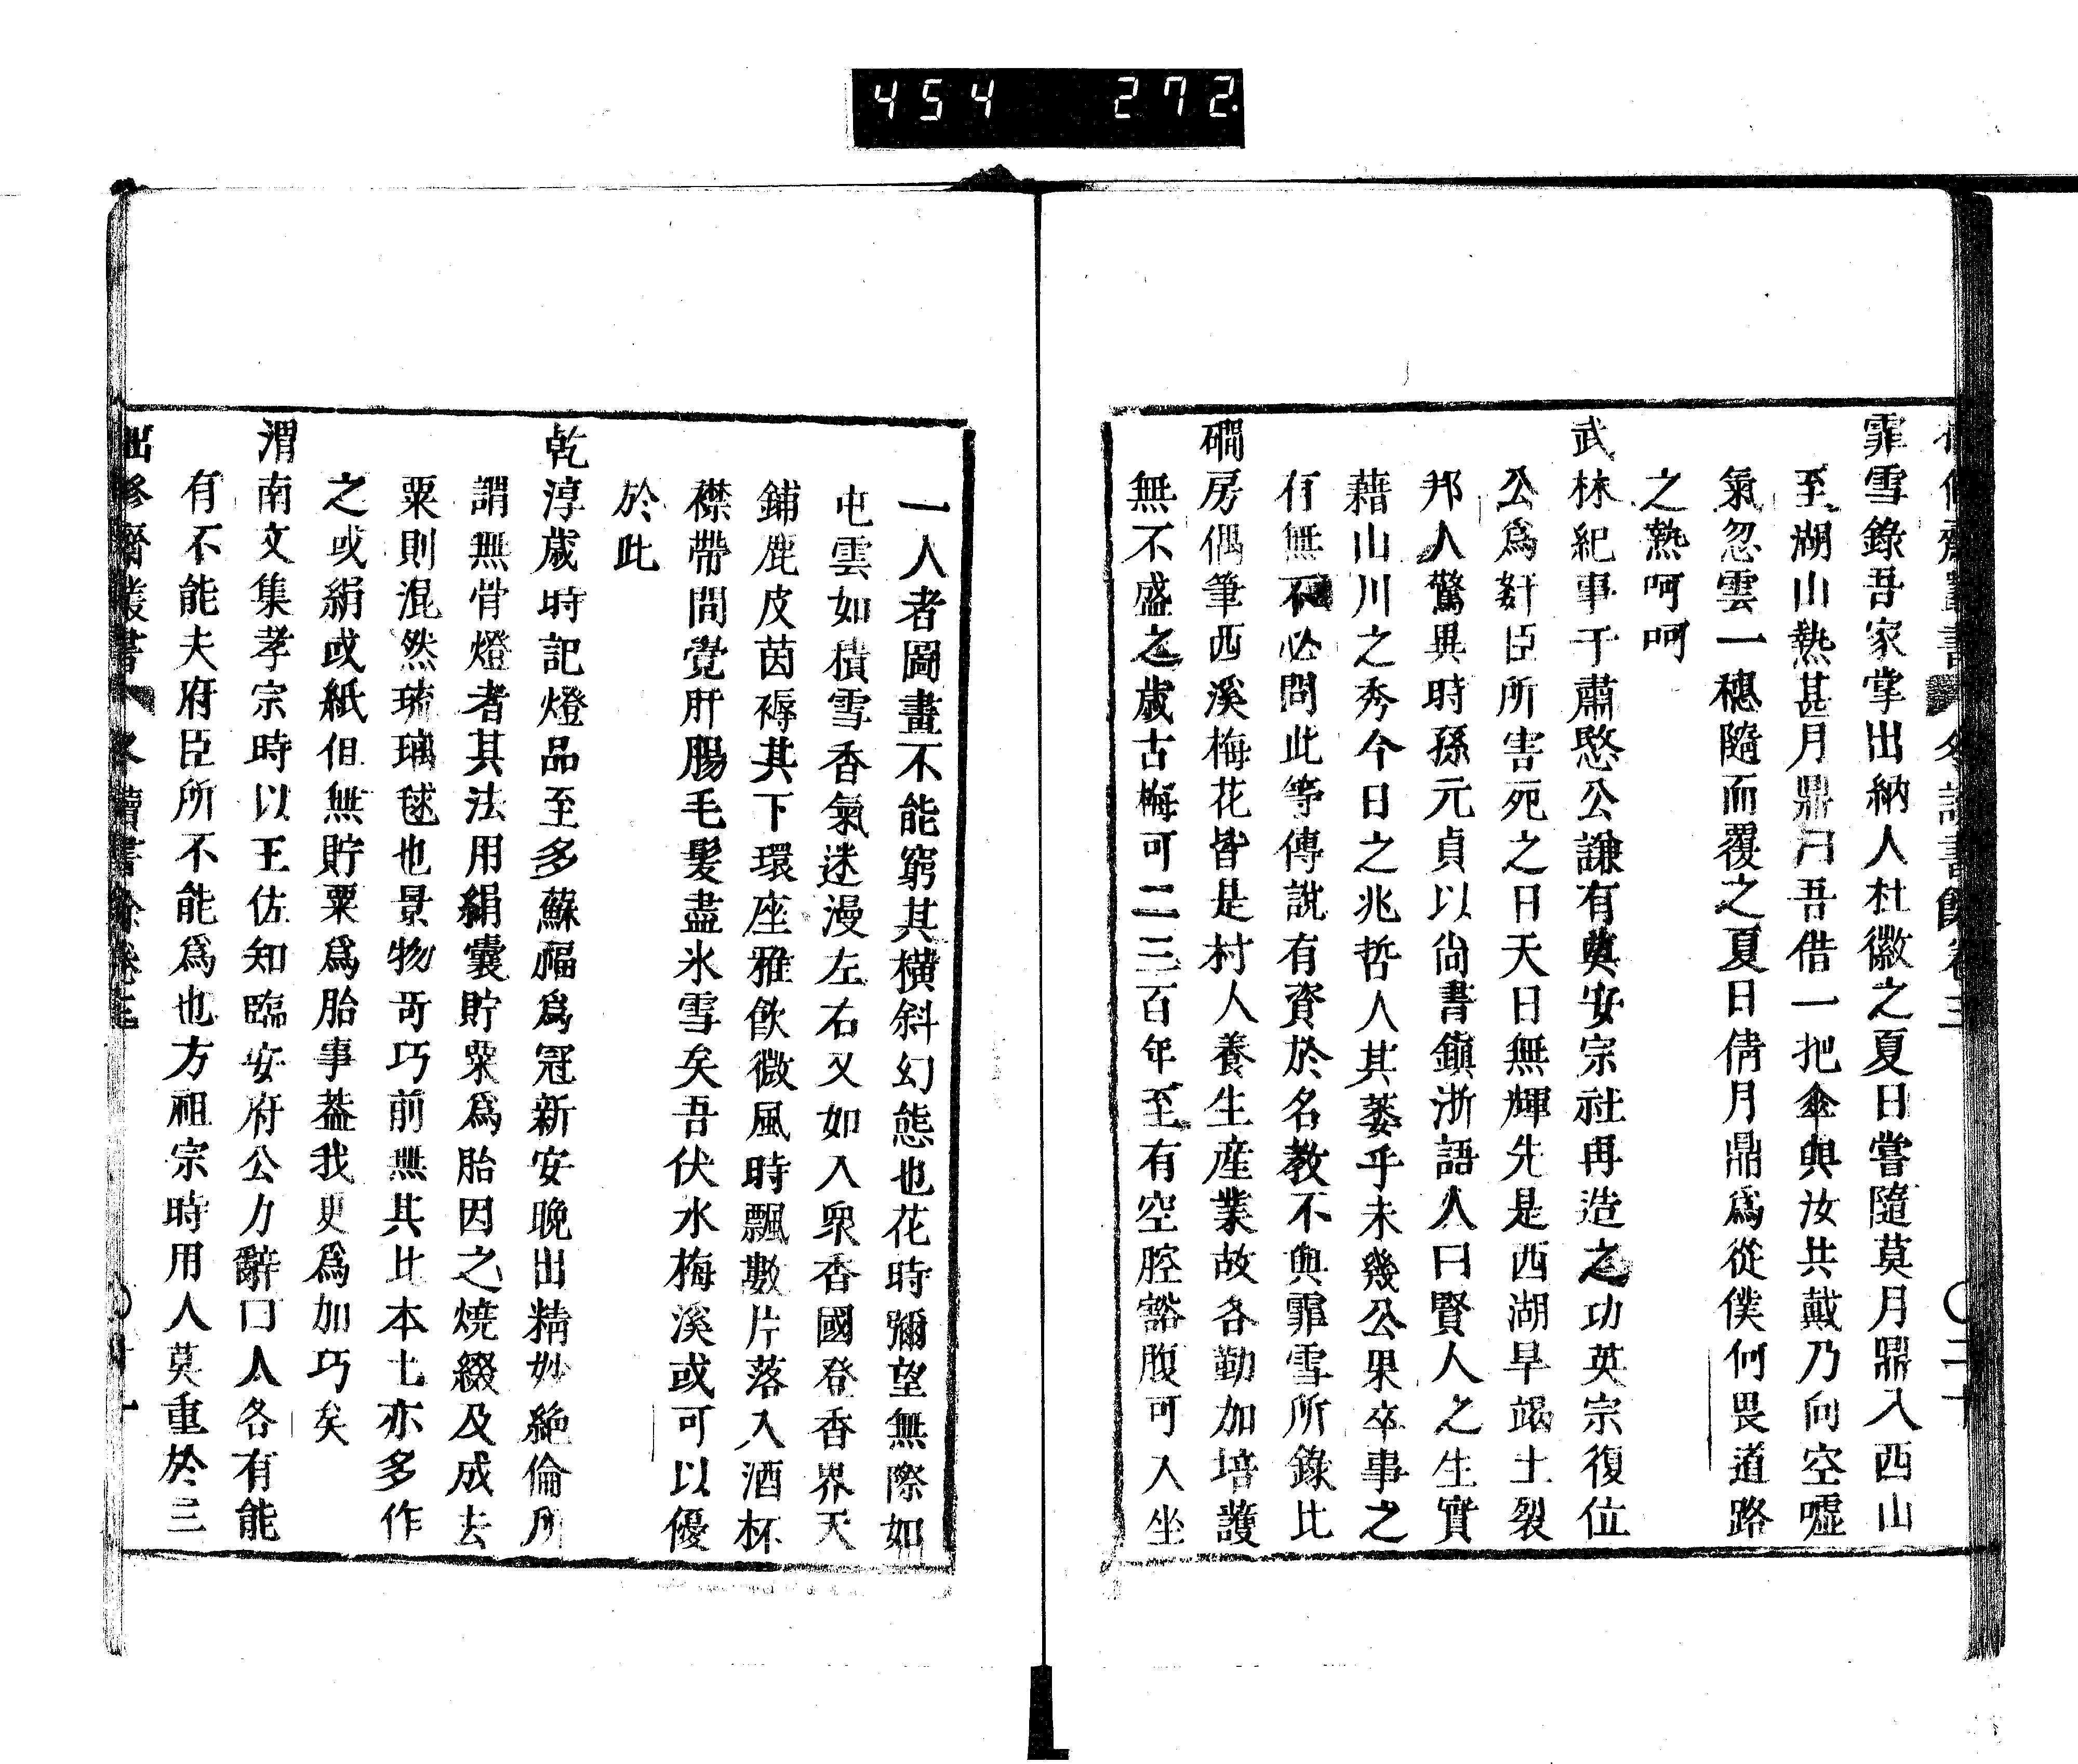 454 272
霏雪錄吾家掌出納人杜徽之夏日嘗隨莫月鼎入西山
至湖山熱甚月鼎曰吾借一把傘與汝共戴乃向空噓
氣忽雲一穗隨而覆之夏日倩月鼎爲從僕何畏道路
之熱呵呵
武林紀事于肅愍公謙有奠安宗社再造之功英宗復位
公爲奸臣所害死之日天日無輝先是西湖旱竭土裂
邦人驚異時孫元貞以尚書鎮浙語人曰賢人之生實
藉山川之秀今日之兆哲人其萎乎未幾公果卒事之
有無不必問此等傳說有資於名教不與霏雪所錄比
磵房偶筆西溪梅花皆是村人養生産業故各勤加培護
無不盛之歲古梅可二三百年至有空腔豁腹可入坐
一人者圖畫不能窮其橫斜幻態也花時彌望無際如
屯雲如積雪香氣迷漫左右又如入衆香國登香界天
鋪鹿皮茵褥其下環座雅飲微風時飄數片落入酒杯
襟帶間覺肝腸毛髮盡氷雪矣吾伏水梅溪或可以優
於此
乾淳歲時記燈品至多蘇福爲冠新安晚出精妙絶倫所
謂無骨燈者其法用絹囊貯粟爲胎因之燒綴及成去
粟則混然琉璃毬也景物奇巧前無其比本土亦多作
之或絹或紙但無貯粟爲胎事葢我更爲加巧矣
渭南文集孝宗時以王佐知臨安府公力辭曰人各有能
有不能夫府臣所不能爲也方祖宗時用人莫重於三